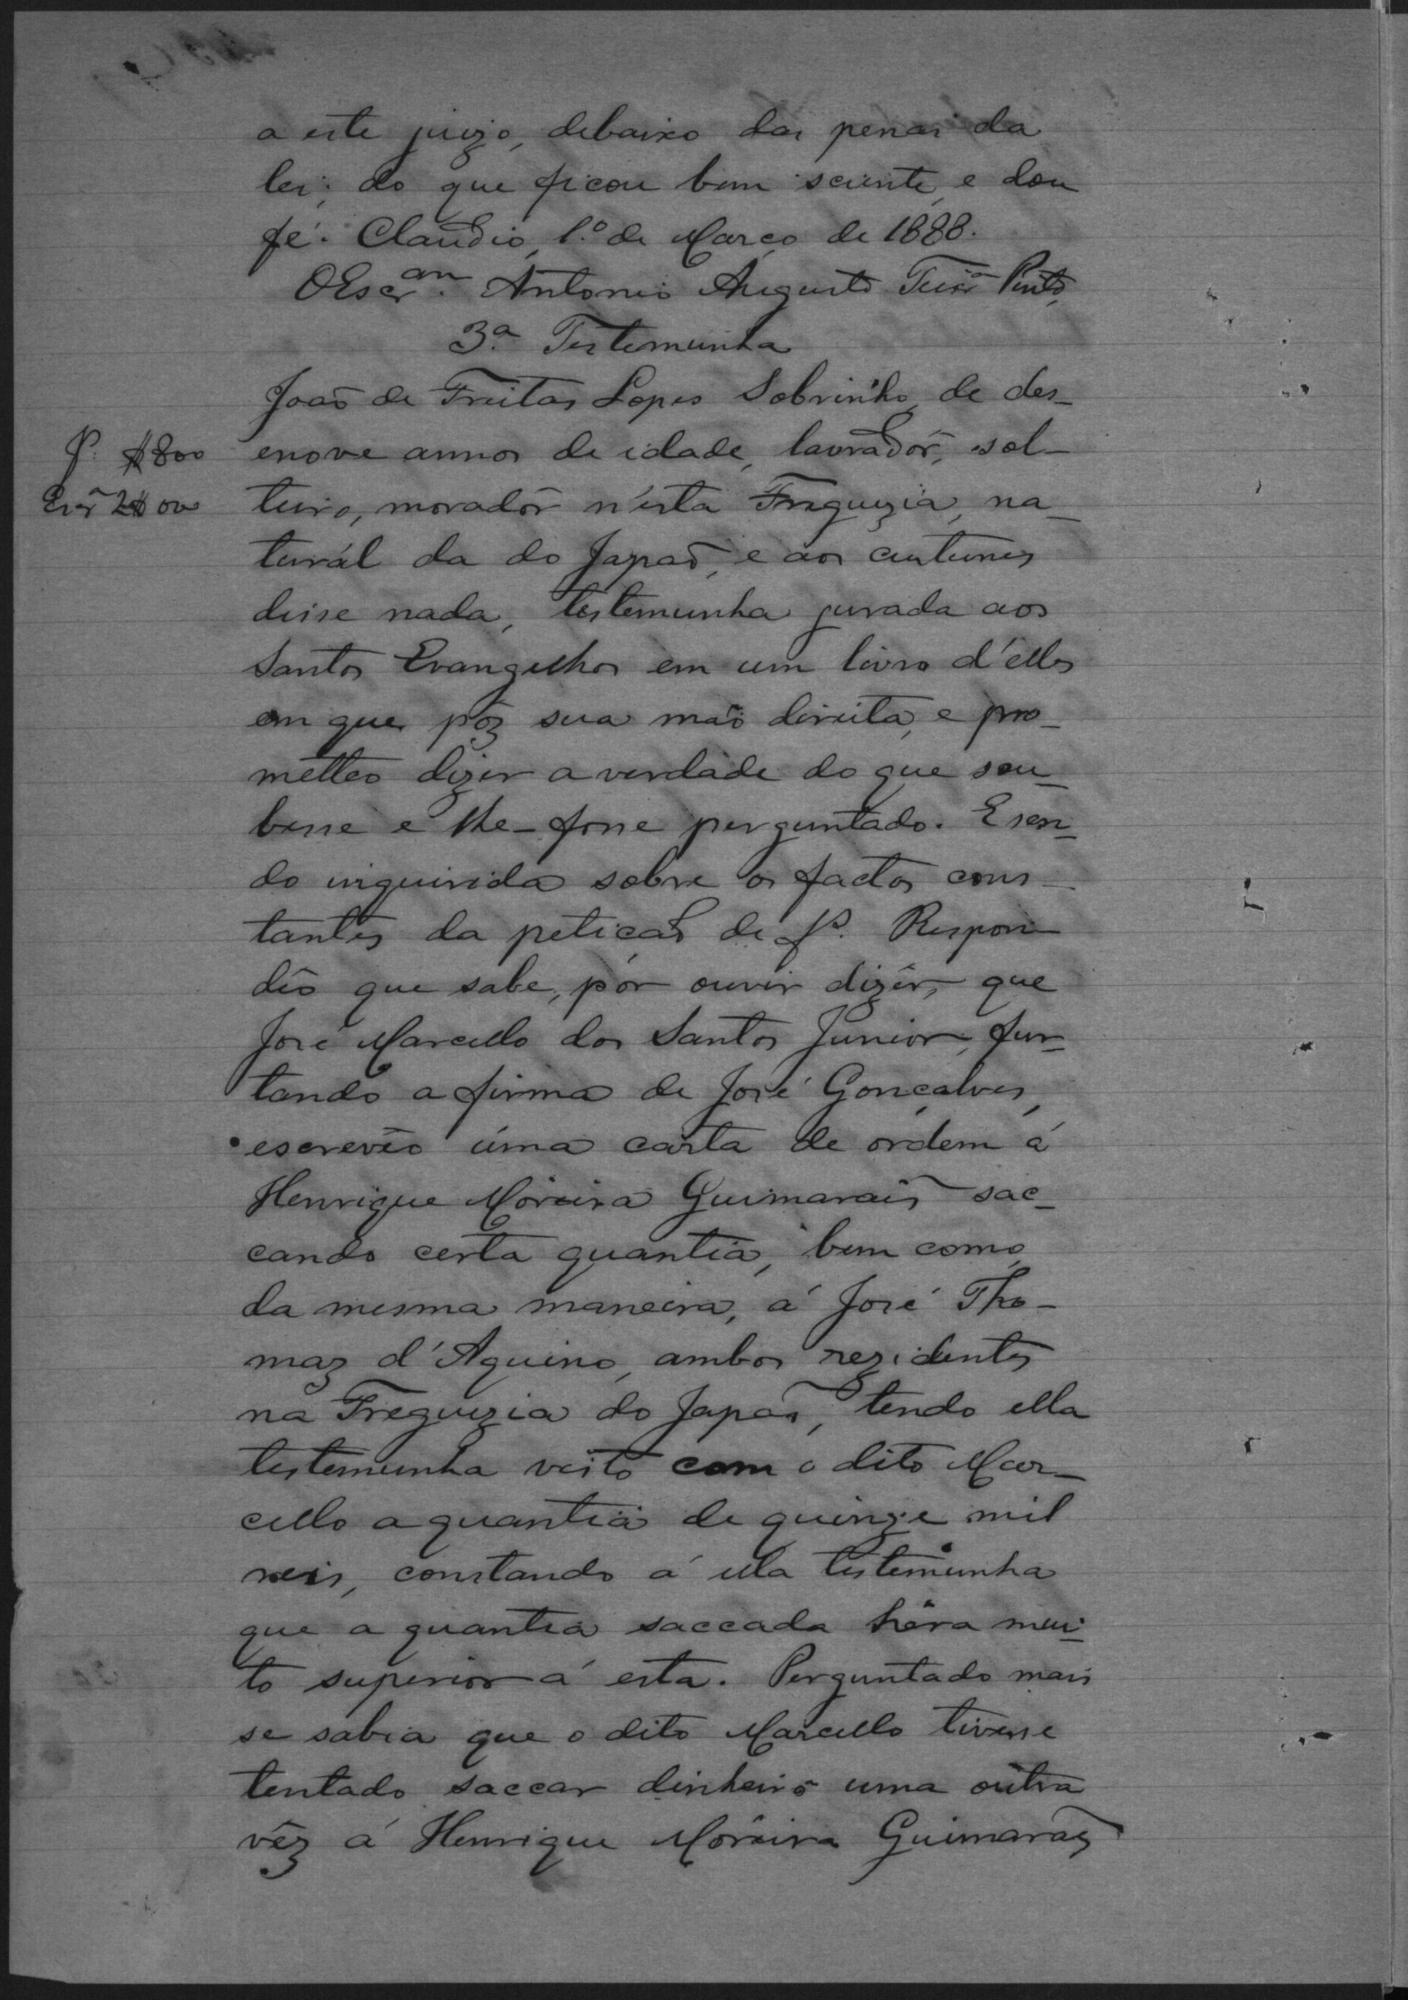 a este juizo, debaixo das penas da
lei; do que ficou bem sciente, e dou
fé. Claudio, 1.º de Março de 1888.
O Escr.am Antonio Augusto Teixr.a Pinto
3.ª Testemunha
João de Freitas Lopes Sobrinho, de des-
J. $800
enove annos de idade, lavrador, sol-
Escr.m 2$000
teiro, morador n'esta Freguezia, na-
turál da do Japão, e aos custumes
disse nada, testemunha jurada aos
Santos Evangelhos em um livro d'elles
em que pôz sua mão direita, e pro-
metteo dizer a verdade do que sou-
besse e lhe-fosse perguntado. E sen-
do inquirida sobre os factos cons-
tantes da petição de f.s. Respon-
dêo que sabe, por ouvir dizêr, que
José Marcello dos Santos Junior, fur-
tando a firma de José Gonçalves,
escrevêo uma carta de ordem á
Henrique Morêira Guimarais sac-
cando certa quantia, bem como,
da mesma maneira, á José Tho-
maz d'Aquino, ambos rezidentes
na Freguezia do Japão, tendo ella
testemunha visto com o dito Mar-
cello a quantia de quinze mil
reis, constando á ella testemunha
que a quantia saccada héra mui-
to superior á esta. Perguntado mais
se sabia que o dito Marcello tivesse
tentado saccar dinheiro uma outra
vêz á Henrique Morêira Guimarães